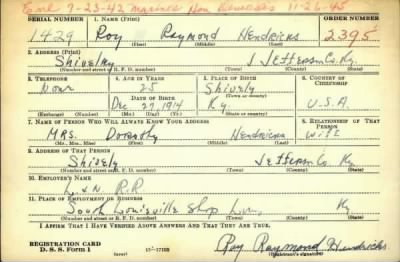 Enl 9-23-42 Marines Hon 11-26-45
SERIAL NUMBER 1. NAME (Print) ORDER NUMBER
1429 Roy Raymond Hendricks 2395
(First) (Middle) (Last)
2. ADDRESS (Print)
Shively Jefferson Co. Ky.
(Number and street or R. F. D. number) (Town) (County) (State)
3. TELEPHONE 4. AGE IN YEARS 5. PLACE OF BIRTH 6. COUNTRY OF CITIZENSHIP
None 25 Shively
DATE OF BIRTH (Town or county)
Dec 27 1914 Ky. U.S.A
(Exchange) (Number) (Mo.) (Day) (Yr.) (State or country)
7. NAME OF PERSON WHO WILL ALWAYS KNOW YOUR ADDRESS 8. RELATIONSHIP OF THAT PERSON
MRS. Dorothy Hendricks Wife
(Mr., Mrs., Miss) (First) (Middle) (Last)
9. ADDRESS OF THAT PERSON
Shively Jefferson Co Ky
(Number and street or R. F. D. number) (Town) (County) (State)
10. EMPLOYER'S NAME
L&N. R.R
11. PLACE OF EMPLOYMENT OR BUSINESS
South Louisville Shop Ky
(Number and street or R. F. D. number) (Town) (County) (State)
I AFFIRM THAT I HAVE VERIFIED ABOVE ANSWERS AND THAT THEY ARE TRUE.
REGISTRATION CARD
D. S. S. Form 1 (over) Roy Raymond Hendricks
(Registrant's signature)